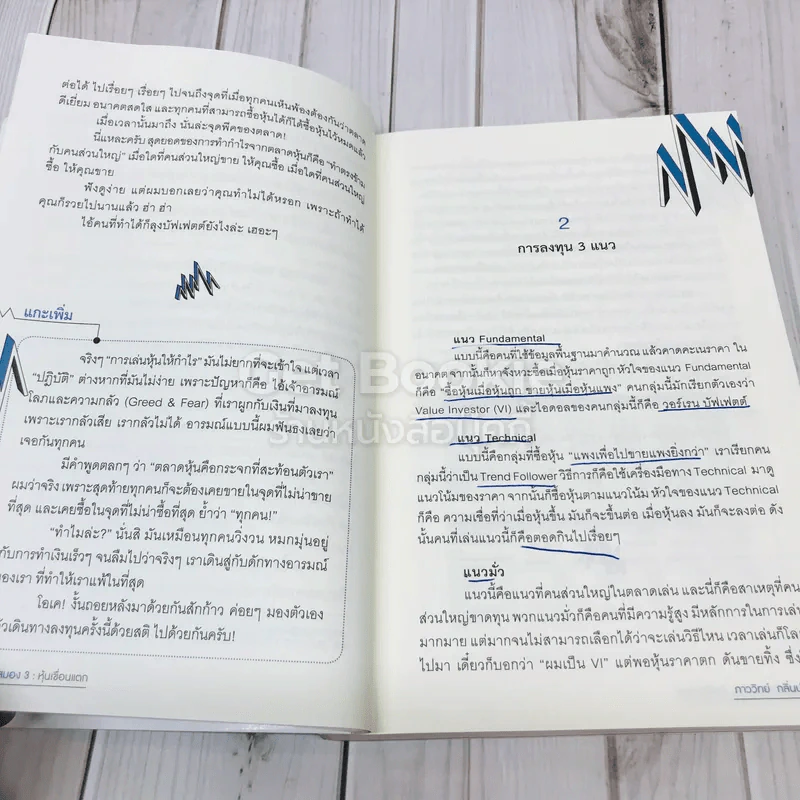 ต่อได้ ไปเรื่อยๆ เรื่อยๆ ไปจนถึงจุดที่เมื่อทุกคนเห็นพ้องต้องกันว่าตลาด
ดีเยี่ยม อนาคตสดใส และทุกคนที่สามารถซื้อหุ้นได้ก็ได้ซื้อหุ้นไว้หมดแล้ว
เมื่อเวลานั้นมาถึง นั่นล่ะจุดพีคของตลาด!
นี่แหละครับ สุดยอดของการทำกำไรจากตลาดหุ้นก็คือ "ทำตรงข้าม
กับคนส่วนใหญ่" เมื่อใดที่คนส่วนใหญ่ขาย ให้คุณซื้อ เมื่อใดที่คนส่วนใหญ่
ซื้อ ให้คุณขาย
ฟังดูง่าย แต่ผมบอกเลยว่าคุณทำไม่ได้หรอก เพราะถ้าทำได้
คุณก็รวยไปนานแล้ว ฮ่า ฮ่า
ไอ้คนที่ทำได้ก็ลุงบัฟเฟตต์ยังไงล่ะ เฮอะๆ
แกะเพิ่ม
จริงๆ "การเล่นหุ้นให้กำไร" มันไม่ยากที่จะเข้าใจ แต่เวลา
"ปฏิบัติ" ต่างหากที่มันไม่ง่าย เพราะปัญหาก็คือ ไอ้เจ้าอารมณ์
โลภและความกลัว (Greed & Fear) ที่เราผูกกับเงินที่มาลงทุน
เพราะเรากลัวเสีย เรากลัวไม่ได้ อารมณ์แบบนี้ผมฟันธงเลยว่า
เจอกันทุกคน
มีคำพูดตลกๆ ว่า "ตลาดหุ้นคือกระจกที่สะท้อนตัวเรา"
ผมว่าจริง เพราะสุดท้ายทุกคนก็จะต้องเคยขายในจุดที่ไม่น่าขาย
ที่สุด และเคยซื้อในจุดที่ไม่น่าซื้อที่สุด ย้ำว่า "ทุกคน!"
"ทำไมล่ะ?" นั่นสิ มันเหมือนทุกคนวิ่งวน หมกมุ่นอยู่
กับการทำเงินเร็วๆ จนลืมไปว่าจริงๆ เราเดินสู่กับดักทางอารมณ์
ของเรา ที่ทำให้เราแพ้ในที่สุด
โอเค! งั้นถอยหลังมาด้วยกันสักก้าว ค่อยๆ มองตัวเอง
เดินทางลงทุนครั้งนี้ด้วยสติ ไปด้วยกันครับ!
สมอง 3 : หุ้นเขื่อนแตก
2
การลงทุน 3 แนว
แนว Fundamental
แบบนี้คือคนที่ใช้ข้อมูลพื้นฐานมาคำนวณ แล้วคาดคะเนราคา ใน
อนาคต จากนั้นก็หาจังหวะซื้อเมื่อหุ้นราคาถูก หัวใจของแนว Fundamental
ก็คือ "ซื้อหุ้นเมื่อหุ้นถูก ขายหุ้นเมื่อหุ้นแพง" คนกลุ่มนี้มักเรียกตัวเองว่า
Value Investor (VI) และไอดอลของคนกลุ่มนี้ก็คือ วอร์เรน บัฟเฟตต์
แนว Technical
แบบนี้คือกลุ่มที่ซื้อหุ้น "แพงเพื่อไปขายแพงยิ่งกว่า" เราเรียกคน
กลุ่มนี้ว่าเป็น Trend Follower วิธีการก็คือใช้เครื่องมือทาง Technical มาดู
แนวโน้มของราคา จากนั้นก็ซื้อหุ้นตามแนวโน้ม หัวใจของแนว Technical
ก็คือ ความเชื่อที่ว่าเมื่อหุ้นขึ้น มันก็จะขึ้นต่อ เมื่อหุ้นลง มันก็จะลงต่อ ดัง
นั้นคนที่เล่นแนวนี้ก็คือตอดกินไปเรื่อยๆ
แนวมั่ว
แนวนี้คือแนวที่คนส่วนใหญ่ในตลาดเล่น และนี่ก็คือสาเหตุที่คน
ส่วนใหญ่ขาดทุน พวกแนวมั่วก็คือคนที่มีความรู้สูง มีหลักการในการเล่น
มากมาย แต่มากจนไม่สามารถเลือกได้ว่าจะเล่นวิธีไหน เวลาเล่นก็โล
ไปมา เดี๋ยวก็บอกว่า "ผมเป็น VI" แต่พอหุ้นราคาตก ดันขายทิ้ง ซึ่ง
ภาววิทย์ กลิ่น
Get Book
ร้านหนังสือ